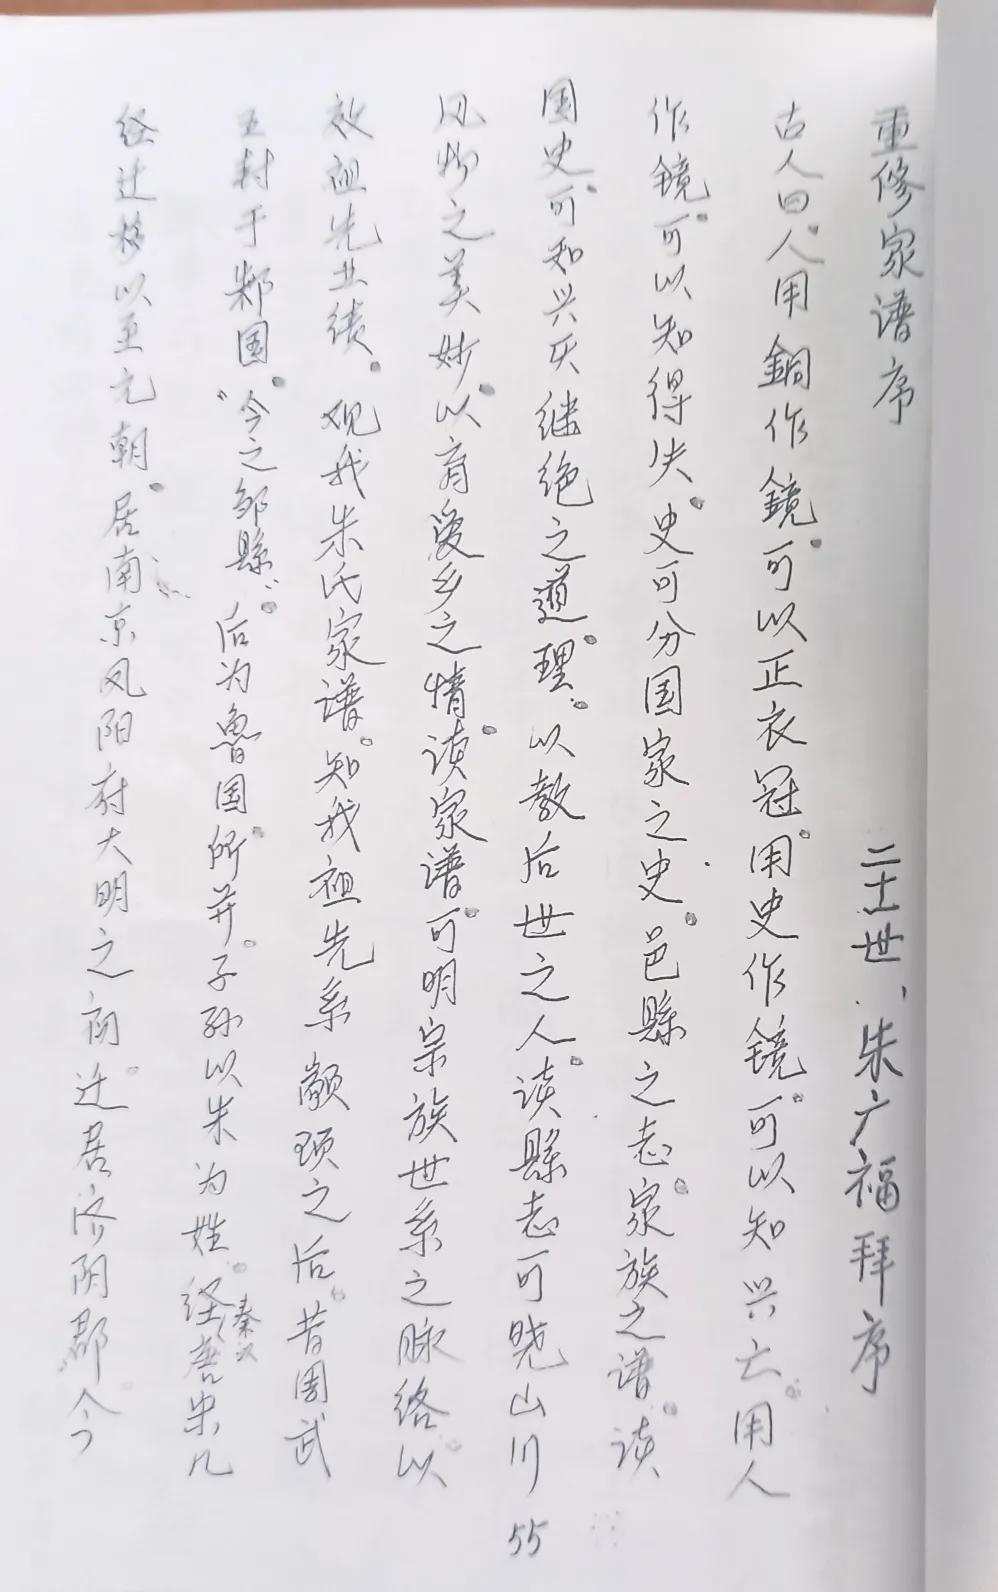 重修家谱序
二十世、朱广福拜序
古人曰。人用銅作鏡。可以正衣冠。用史作鏡。可以知兴亡。用人
作鏡。可以知得失。史可分国家之史。邑縣之志。家族之谱。读
国史。可知兴灭继绝之道理。以教后世之人。读縣志可晓山川
风物之美妙。以育爱乡之情。读家谱。可明宗族世系之脉络。以
效祖先业绩。观我朱氏家谱。知我祖先系颛顼之后。昔周武
王封于邾国。“今之邹縣”。后为鲁国所并。子孙以朱为姓。经秦汉唐宋几
经迁移以至元朝。居南京凤阳府大明之初。迁居济阴郡今
55